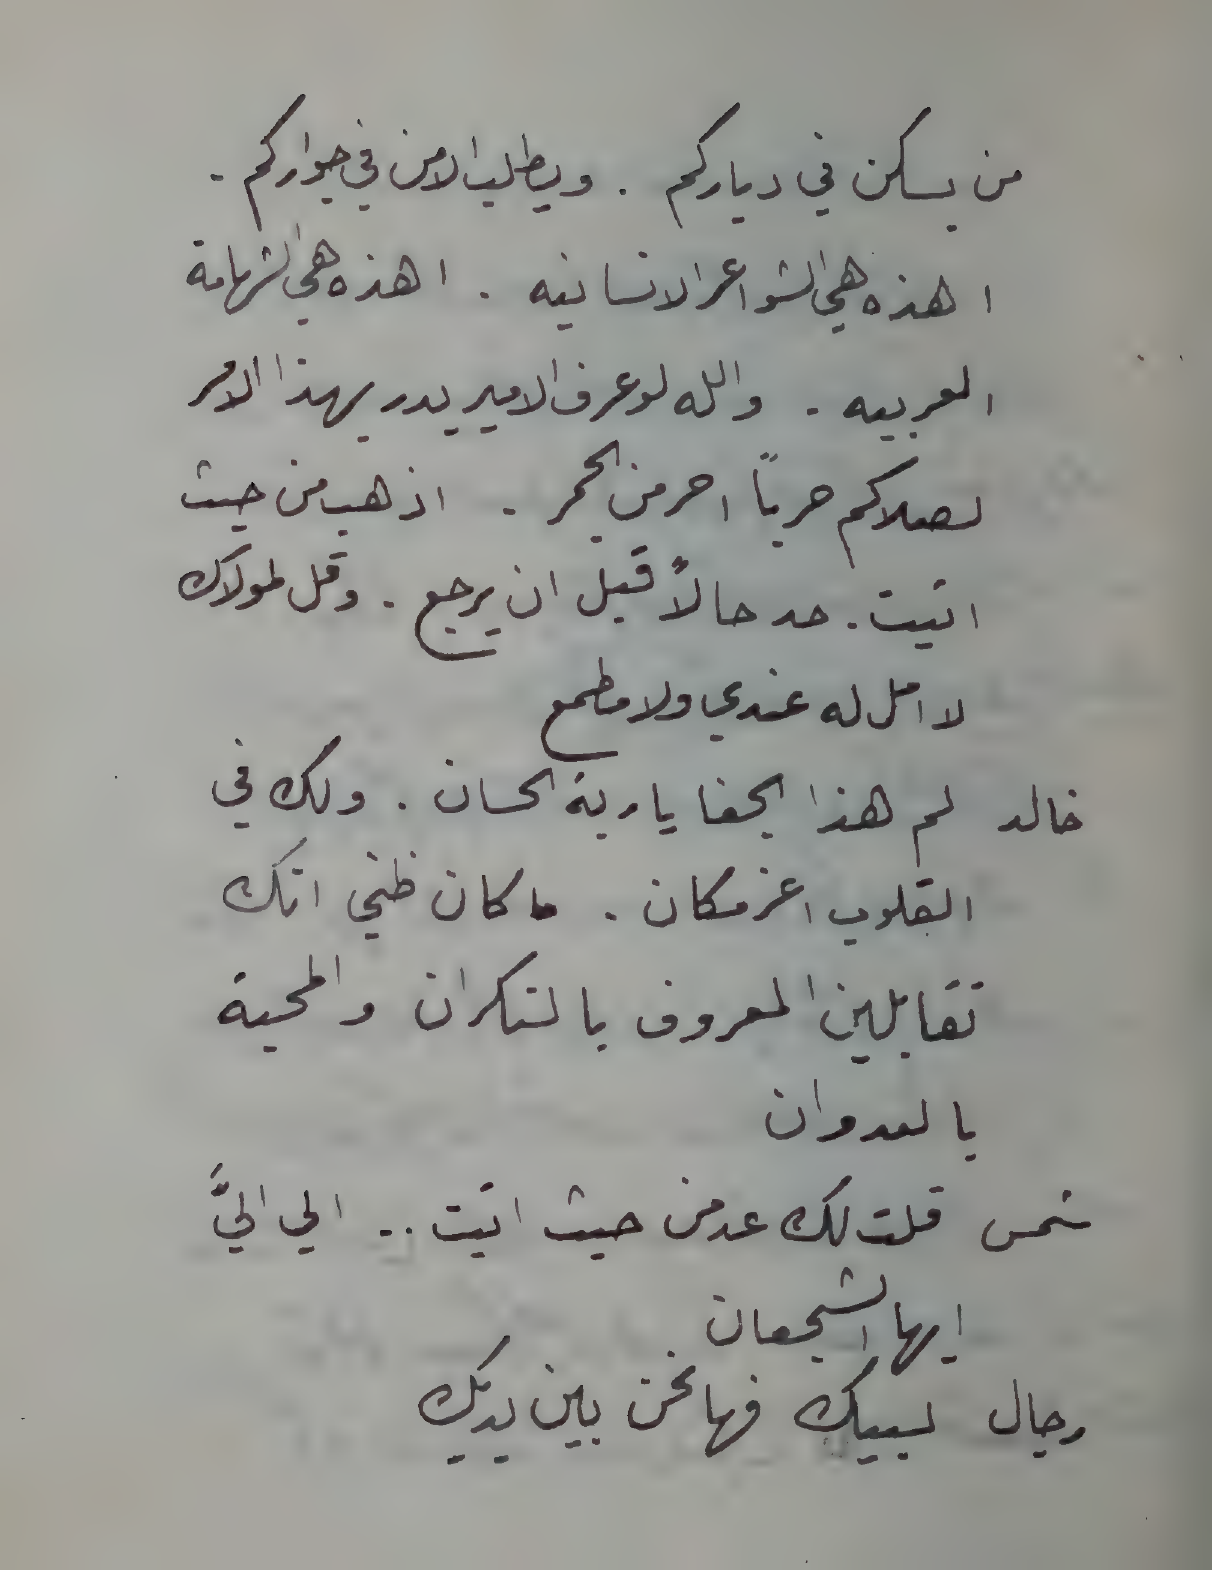 من يسكن في دياركم . ويطلب الامن في جواركم .
اهذه هي الشواعر الانسانيه . اهذه هي الشهامة
العربيه . والله لو عرف الامير يدر بهذا الامر
لصلاكم حربًا احر من الجمر . اذهب من حيث
اتيت . حد حالاً قبل ان يرجع . وقل لمولاك
لا امل له عندي ولا مطمع
خالد لم هذا الجفا يا ربة الحسان . ولك في
القلوب اعز مكان . ما كان ظني انك
تقابلين المعروف بالنكران والمحبة
بالعدوان
شمس قلت لك عد من حيث اتيت .. الي اليَّ
ايها الشجعان
رجال لبيك فها نحن بين يديك